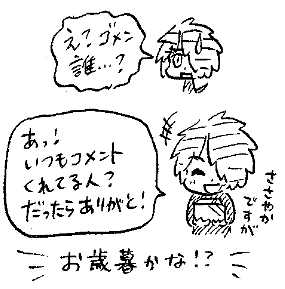 え?ゴメン
誰…?
あっ!
いつもコメント
くれてる人?
だったらありがと!
ささやか
ですが
お歳暮かな!?